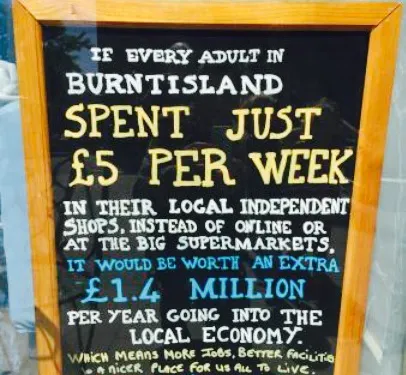 IF EVERY ADULT IN
BURNTISLAND
SPENT JUST
£5 PER WEEK
IN THEIR LOCAL INDEPENDENT
SHOPS, INSTEAD OF ONLINE OR
AT THE BIG SUPERMARKETS,
IT WOULD BE WORTH AN EXTRA
£1.4 MILLION
PER YEAR GOING INTO THE
LOCAL ECONOMY.
WHICH MEANS MORE JOBS, BETTER FACILITIES
& A NICER PLACE FOR US ALL TO LIVE.